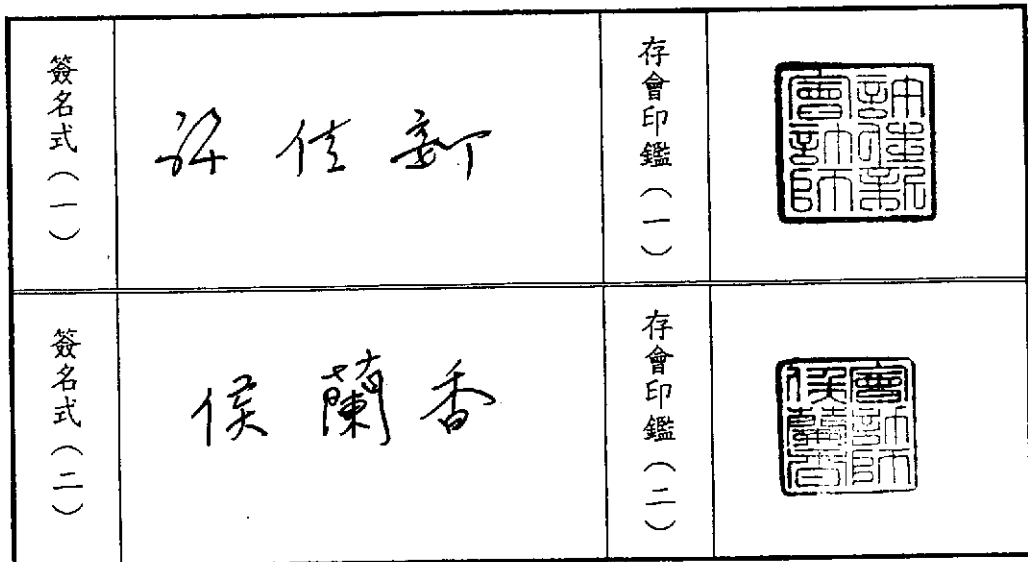 簽名式(一)
許佳新
存會印鑑(一)
許佳新
會計師
簽名式(二)
侯蘭香
存會印鑑(二)
會計師
侯蘭香